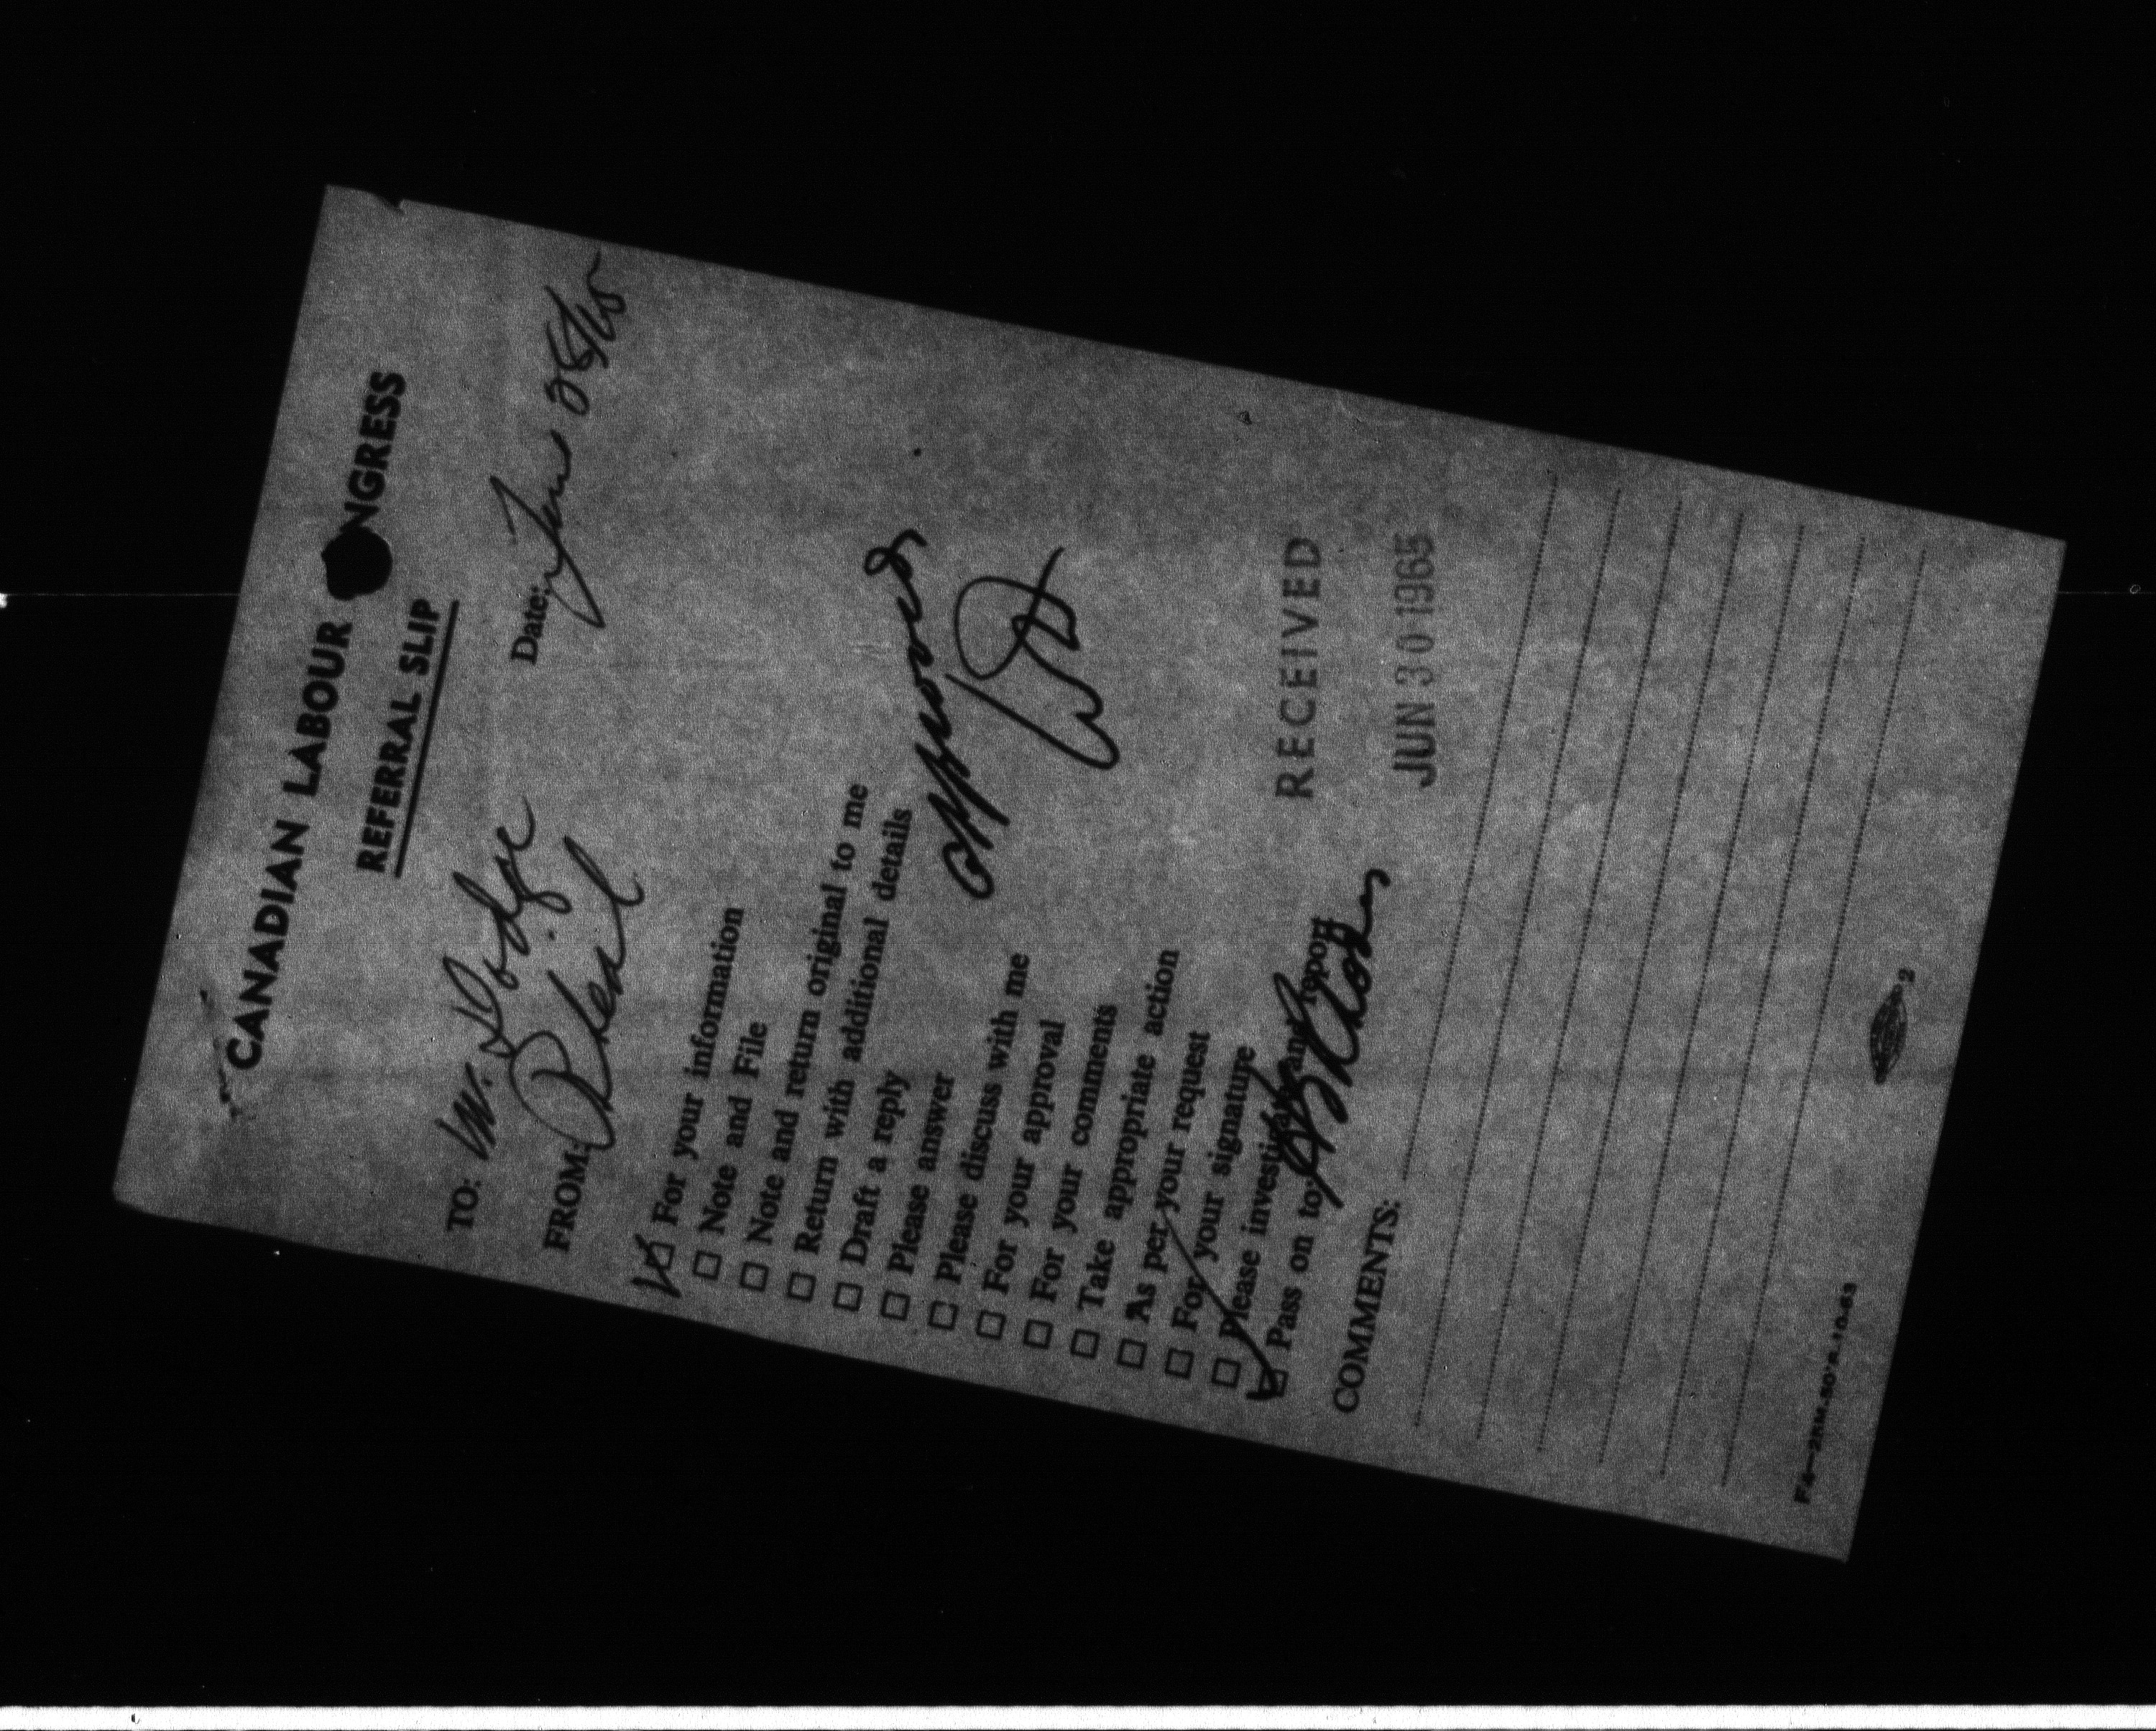 CANADIAN LABOUR NGRESS
REFERRAL SLIP
TO: W. Dodge Date: June 28/65
FROM:
☑ For your information
☐ Note and File
☐ Note and return original to me
☐ Return with additional details
☐ Draft a reply
☐ Please answer
approved
WD
☐ Please discuss with me
☐ For your approval
☐ For your comments
☐ Take appropriate action
☐ As per your request
☐ For your signature
☐ Please investigate and report
☑ Pass on to
RECEIVED
JUN 30 1965
COMMENTS:
2